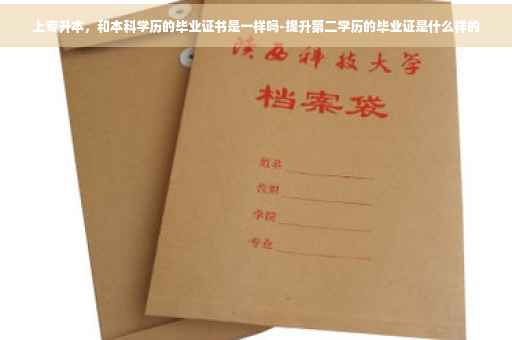 上专升本，和本科学历的毕业证书是一样吗-提升第二学历的毕业证是什么样的
陕西科技大学
档案袋
姓名
学院
专业